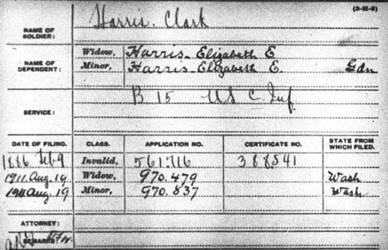 (3-25-2)
NAME OF SOLDIER: Harris. Clark
NAME OF DEPENDENT: Widow, Harris. Elizabeth E.
Minor, Harris. Elizabeth E. Gdn
SERVICE: B 15 U S C. Inf.
DATE OF FILING. CLASS. APPLICATION NO. CERTIFICATE NO. STATE FROM WHICH FILED.
1886 Feb 9 Invalid, 561.116 388541
1911 Aug. 19 Widow, 970.479 Wash
1911 Aug. 19 Minor, 970.837 Wash
ATTORNEY:
REMARKS: